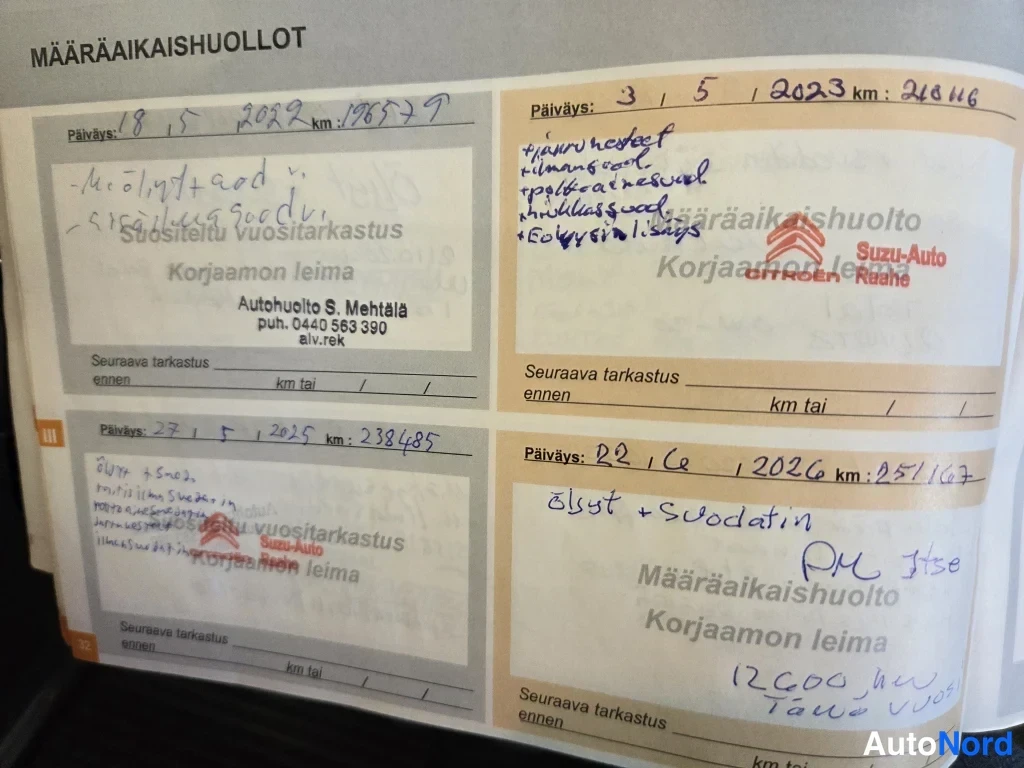 MÄÄRÄAIKAISHUOLLOT
Päiväys: 18 , 5 , 2022 km : 196579
- M. öljyt + sod v.
Suositeltu vuositarkastus
Korjaamon leima
Autohuolto S. Mehtälä
puh. 0440 563 390
alv.rek
Seuraava tarkastus
ennen km tai / /
Päiväys: 3 / 5 / 2023 km : 218116
+ jarrunesteet
+ ilmansuod.
+ polttoainesuod.
+ hiukkassuod.
+ Eolysin lisäys
Määräaikaishuolto
Korjaamon leima
CITROËN Suzu-Auto
Raahe
Seuraava tarkastus
ennen km tai / /
III
Päiväys: 27 / 5 / 2025 km : 238485
öljyt + suod.
raitisilma suodatin
ilmansuodatin
Suositeltu vuositarkastus
Korjaamon leima
Suzu-Auto
Raahe
Seuraava tarkastus
ennen km tai / /
32
Päiväys: 22 , 6 , 2026 km : 251167
öljyt + suodatin
Itse
Määräaikaishuolto
Korjaamon leima
12600
Tämä vuosi
Seuraava tarkastus
ennen km tai /
AutoNord